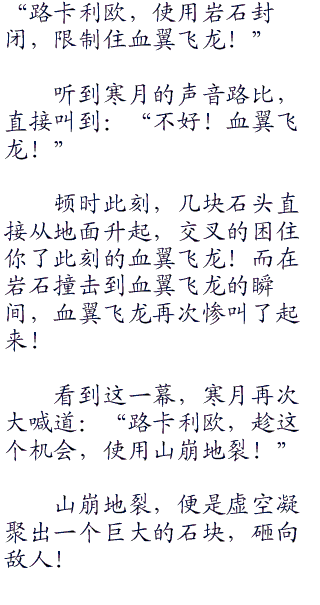 “路卡利欧，使用岩石封
闭，限制住血翼飞龙！”
听到寒月的声音路比，
直接叫到：“不好！血翼飞
龙！”
顿时此刻，几块石头直
接从地面升起，交叉的困住
你了此刻的血翼飞龙！而在
岩石撞击到血翼飞龙的瞬
间，血翼飞龙再次惨叫了起
来！
看到这一幕，寒月再次
大喊道：“路卡利欧，趁这
个机会，使用山崩地裂！”
山崩地裂，便是虚空凝
聚出一个巨大的石块，砸向
敌人！